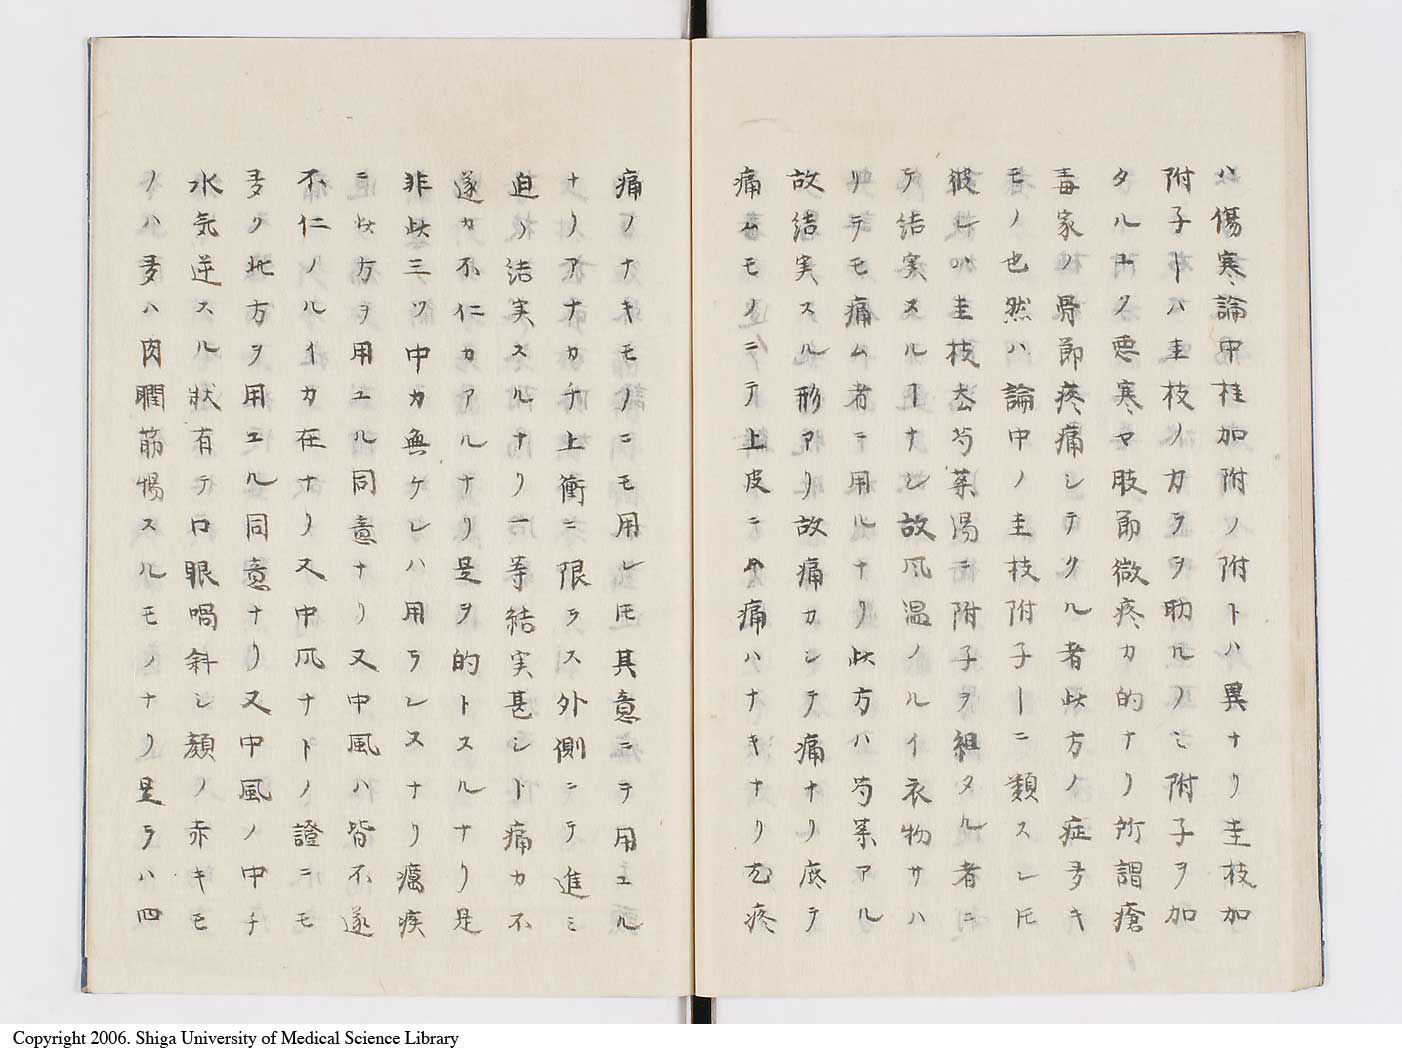 ハ傷寒論中桂加附ノ附トハ異ナリ圭枝加
附子ーハ圭枝ノカヲヲ助ルノミ附子ヲ加
タルユヘ悪寒ヤ肢節微疼カ的ナリ所謂瘡
毒家ノ骨節疼痛シテクル者此方ノ症多キ
モノ也然ハ論中ノ圭枝附子ーニ類スレ𪜈
彼レハ圭枝去芍薬湯ニ附子ヲ組タル者ニ
テ結実スルーナシ故風温ノルイ衣物サハ
リテモ痛ム者ニ用ルナリ此方ハ芍薬アル
故結実スル形アリ故痛カシテ痛ナリ疼テ
痛ムモノニテ上皮ニ痛ハナキナリ尤疼
痛ノナキモノニモ用レ𪜈其意ニテ用ユル
ナリアナカチ上衝ニ限ラス外側ニテ進ミ
迫リ結実スルナリ一等結実甚シト痛カ不
遂カ不仁カアルナリ是ヲ的トスルナリ是
非此三ツ中カ無ケレハ用ラレヌナリ癘疾
ニ此方ヲ用ユル同意ナリ又中風ハ皆不遂
不仁ノルイカ在ナリ又中風ナトノ證ニモ
多ク此方ヲ用ユル同意ナリ又中風ノ中チ
水気逆スル状有テ口眼喎斜シ顔ノ赤キモ
ノハ多ハ肉瞤筋惕スルモノナリ是ラハ四
Copyright 2006. Shiga University of Medical Science Library